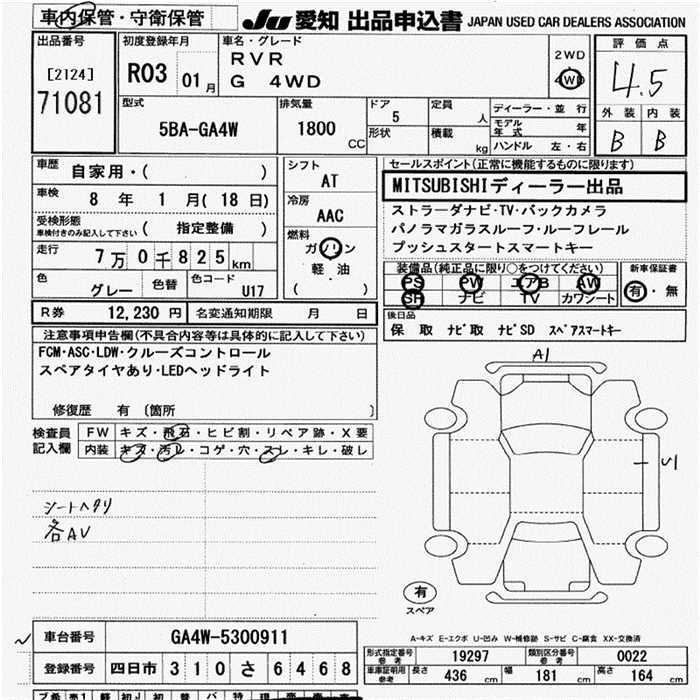 車内保管・守衛保管
JU 愛知 出品申込書 JAPAN USED CAR DEALERS ASSOCIATION
出品番号
[2124]
71081
初度登録年月
R03 01月
車名・グレード
RVR
G 4WD
2WD
4WD
評価点
4.5
外装 内装
B B
型式
5BA-GA4W
排気量
1800 CC
ドア
5
形状
定員 人
積載 kg
ディーラー・並行
モデル年式 年
ハンドル 左・右
車歴
自家用・( )
車検
8年 1月(18日)
受検形態
車検付きのみ記入して下さい
( 指定整備 )
走行
7万0千825km
色
グレー
色替
色コード
U17
シフト
AT
冷房
AAC
燃料
ガソリン
軽油
( )
セールスポイント(正常に機能するものに限ります)
MITSUBISHIディーラー出品
ストラーダナビ・TV・バックカメラ
パノラマガラスルーフ・ルーフレール
プッシュスタートスマートキー
装備品(純正品に限り○をつけてください)
PS PW エアB AW
SR ナビ TV カワシート
新車保証書
有・無
R券 12,230円 名変通知期限 月 日
後日品
保 取 ナビ取 ナビSD スペアスマートキー
注意事項申告欄(不具合内容等は具体的に記入して下さい)
FCM・ASC・LDW・クルーズコントロール
スペアタイヤあり・LEDヘッドライト
修復歴 有 〔箇所 〕
検査員記入欄
FW キズ・飛石・ヒビ割・リペア跡・X要
内装 キズ・汚レ・コゲ・穴・スレ・キレ・破レ
シートヘタリ
各AV
A1
U1
有
スペア
A-キズ E-エクボ U-凹み W-補修跡 S-サビ C-腐食 XX-交換済
車台番号 GA4W-5300911
登録番号 四日市 310 さ 6468
形式指定番号 参考 19297
類別区分番号 参考 0022
車庫証明用 参考 長さ 436cm 幅 181cm 高さ 164cm